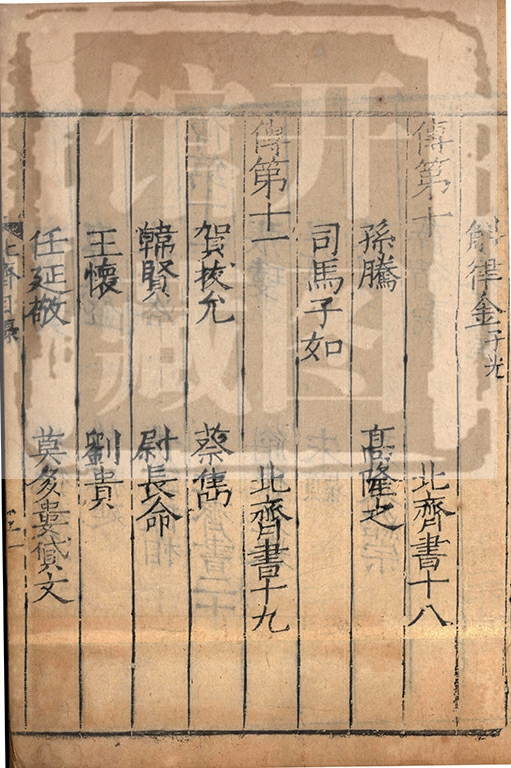 斛律金子光
傳第十 北齊書十八
孫騰 高隆之
司馬子如
傳第十一 北齊書十九
賀拔允 蔡儁
韓賢 尉長命
王懷 劉貴
任延敬 莫多婁貸文
北齊目録
开图馆藏